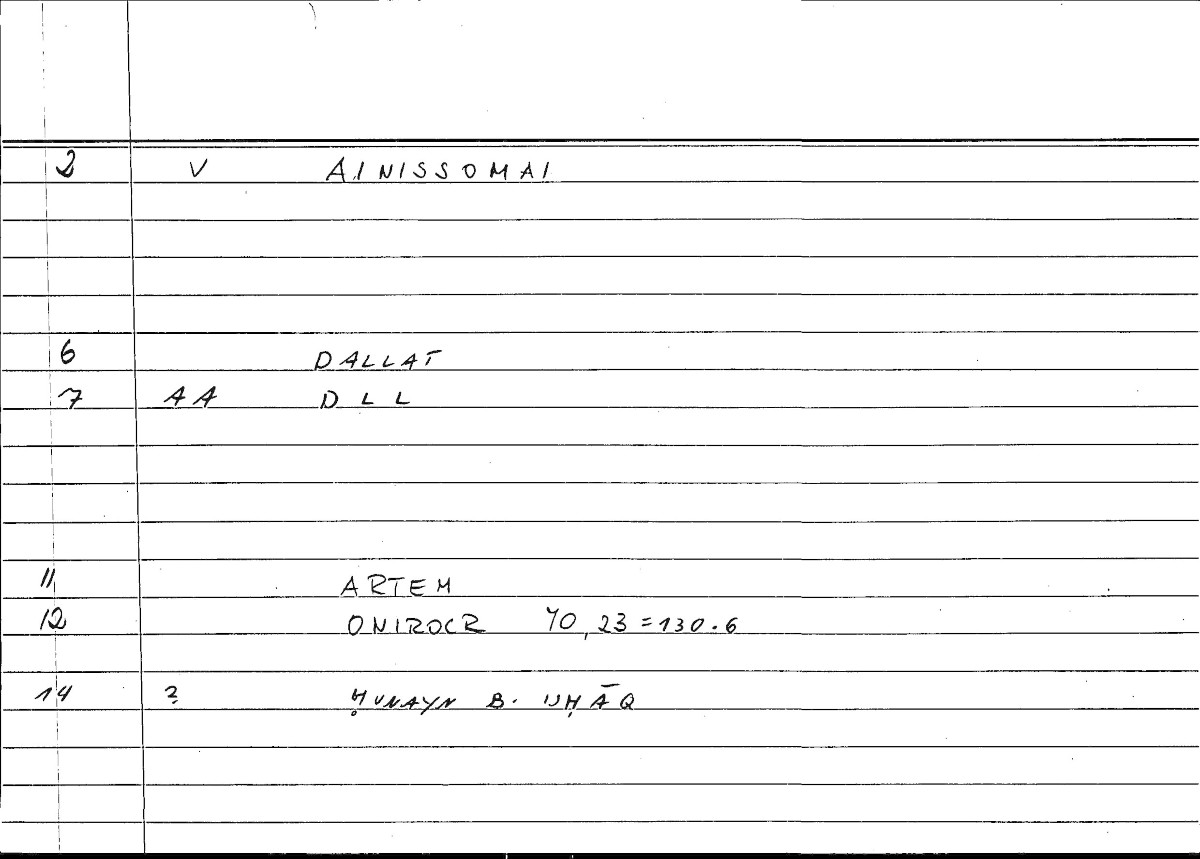 2 V AINISSOMAI
6 DALLAT
7 AA DLL
11 ARTEM
12 ONIROCR 70,23=130.6
14 ? ḤUNAYN B. ISḤĀQ